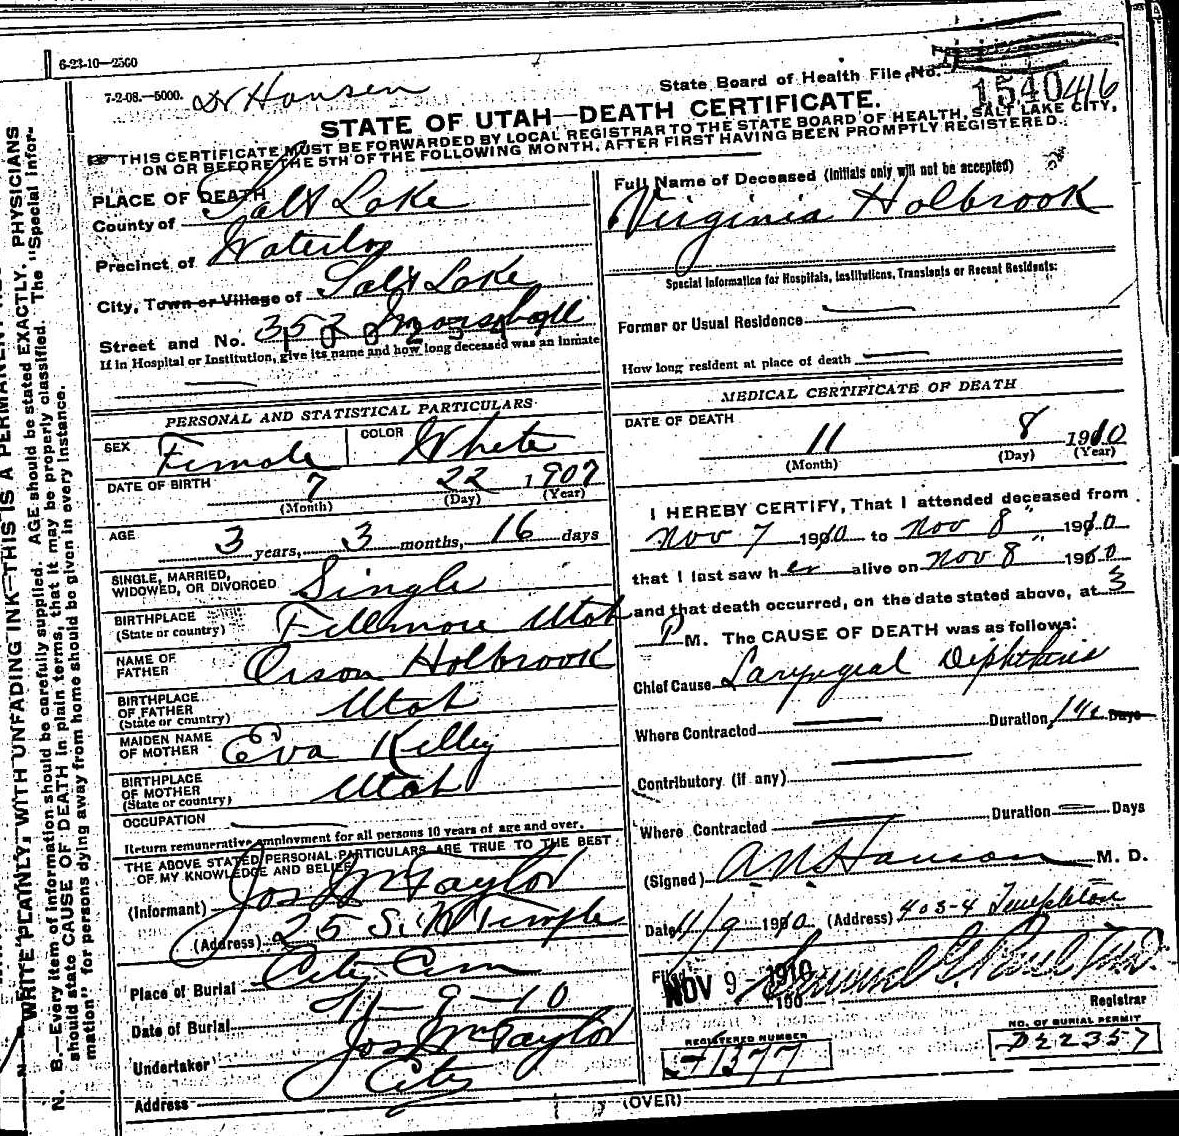 6-23-10—2500
7-2-08.—5000. Dr Hansen
State Board of Health File No.
1540416
STATE OF UTAH—DEATH CERTIFICATE.
THIS CERTIFICATE MUST BE FORWARDED BY LOCAL REGISTRAR TO THE STATE BOARD OF HEALTH, SALT LAKE CITY,
ON OR BEFORE THE 5TH OF THE FOLLOWING MONTH, AFTER FIRST HAVING BEEN PROMPTLY REGISTERED.
PLACE OF DEATH
County of Salt Lake
Precinct of Waterloo
City, Town or Village of Salt Lake
Street and No. 352
If in Hospital or Institution, give its name and how long deceased was an inmate
PERSONAL AND STATISTICAL PARTICULARS
SEX Female COLOR White
DATE OF BIRTH 7 22 1907
(Month) (Day) (Year)
AGE 3 years, 3 months, 16 days
SINGLE, MARRIED,
WIDOWED, OR DIVORCED Single
BIRTHPLACE
(State or country) Fillmore Utah
NAME OF
FATHER Orson Holbrook
BIRTHPLACE
OF FATHER
(State or country) Utah
MAIDEN NAME
OF MOTHER Eva Kelley
BIRTHPLACE
OF MOTHER
(State or country) Utah
OCCUPATION
Return remunerative employment for all persons 10 years of age and over.
THE ABOVE STATED PERSONAL PARTICULARS ARE TRUE TO THE BEST
OF MY KNOWLEDGE AND BELIEF
(Informant) Jos Wm Taylor
(Address) 25 S. W Temple
Place of Burial City Cem
Date of Burial 11-9-10
Undertaker Jos Wm Taylor
Address City
Full Name of Deceased (Initials only will not be accepted)
Virginia Holbrook
Special Information for Hospitals, Institutions, Transients or Recent Residents:
Former or Usual Residence
How long resident at place of death
MEDICAL CERTIFICATE OF DEATH
DATE OF DEATH
11 8 1910
(Month) (Day) (Year)
I HEREBY CERTIFY, That I attended deceased from
Nov 7 1910 to Nov 8" 1910
that I last saw her alive on Nov 8" 1910
and that death occurred, on the date stated above, at 3
P M. The CAUSE OF DEATH was as follows:
Chief Cause Laryngeal Diphtheria
Where Contracted Duration Days
Contributory (if any)
Where Contracted Duration Days
(Signed) A N Hanson M. D.
Date 11/9 1910 (Address) 403-4 Templeton
Filed NOV 9 - 1910
Registrar
REGISTERED NUMBER
71377
NO. OF BURIAL PERMIT
D22357
(OVER)
WRITE PLAINLY, WITH UNFADING INK—THIS IS A PERMANENT
N. B.—Every item of information should be carefully supplied. AGE should be stated EXACTLY. PHYSICIANS
should state CAUSE OF DEATH in plain terms, that it may be properly classified. The "Special Infor-
mation" for persons dying away from home should be given in every instance.